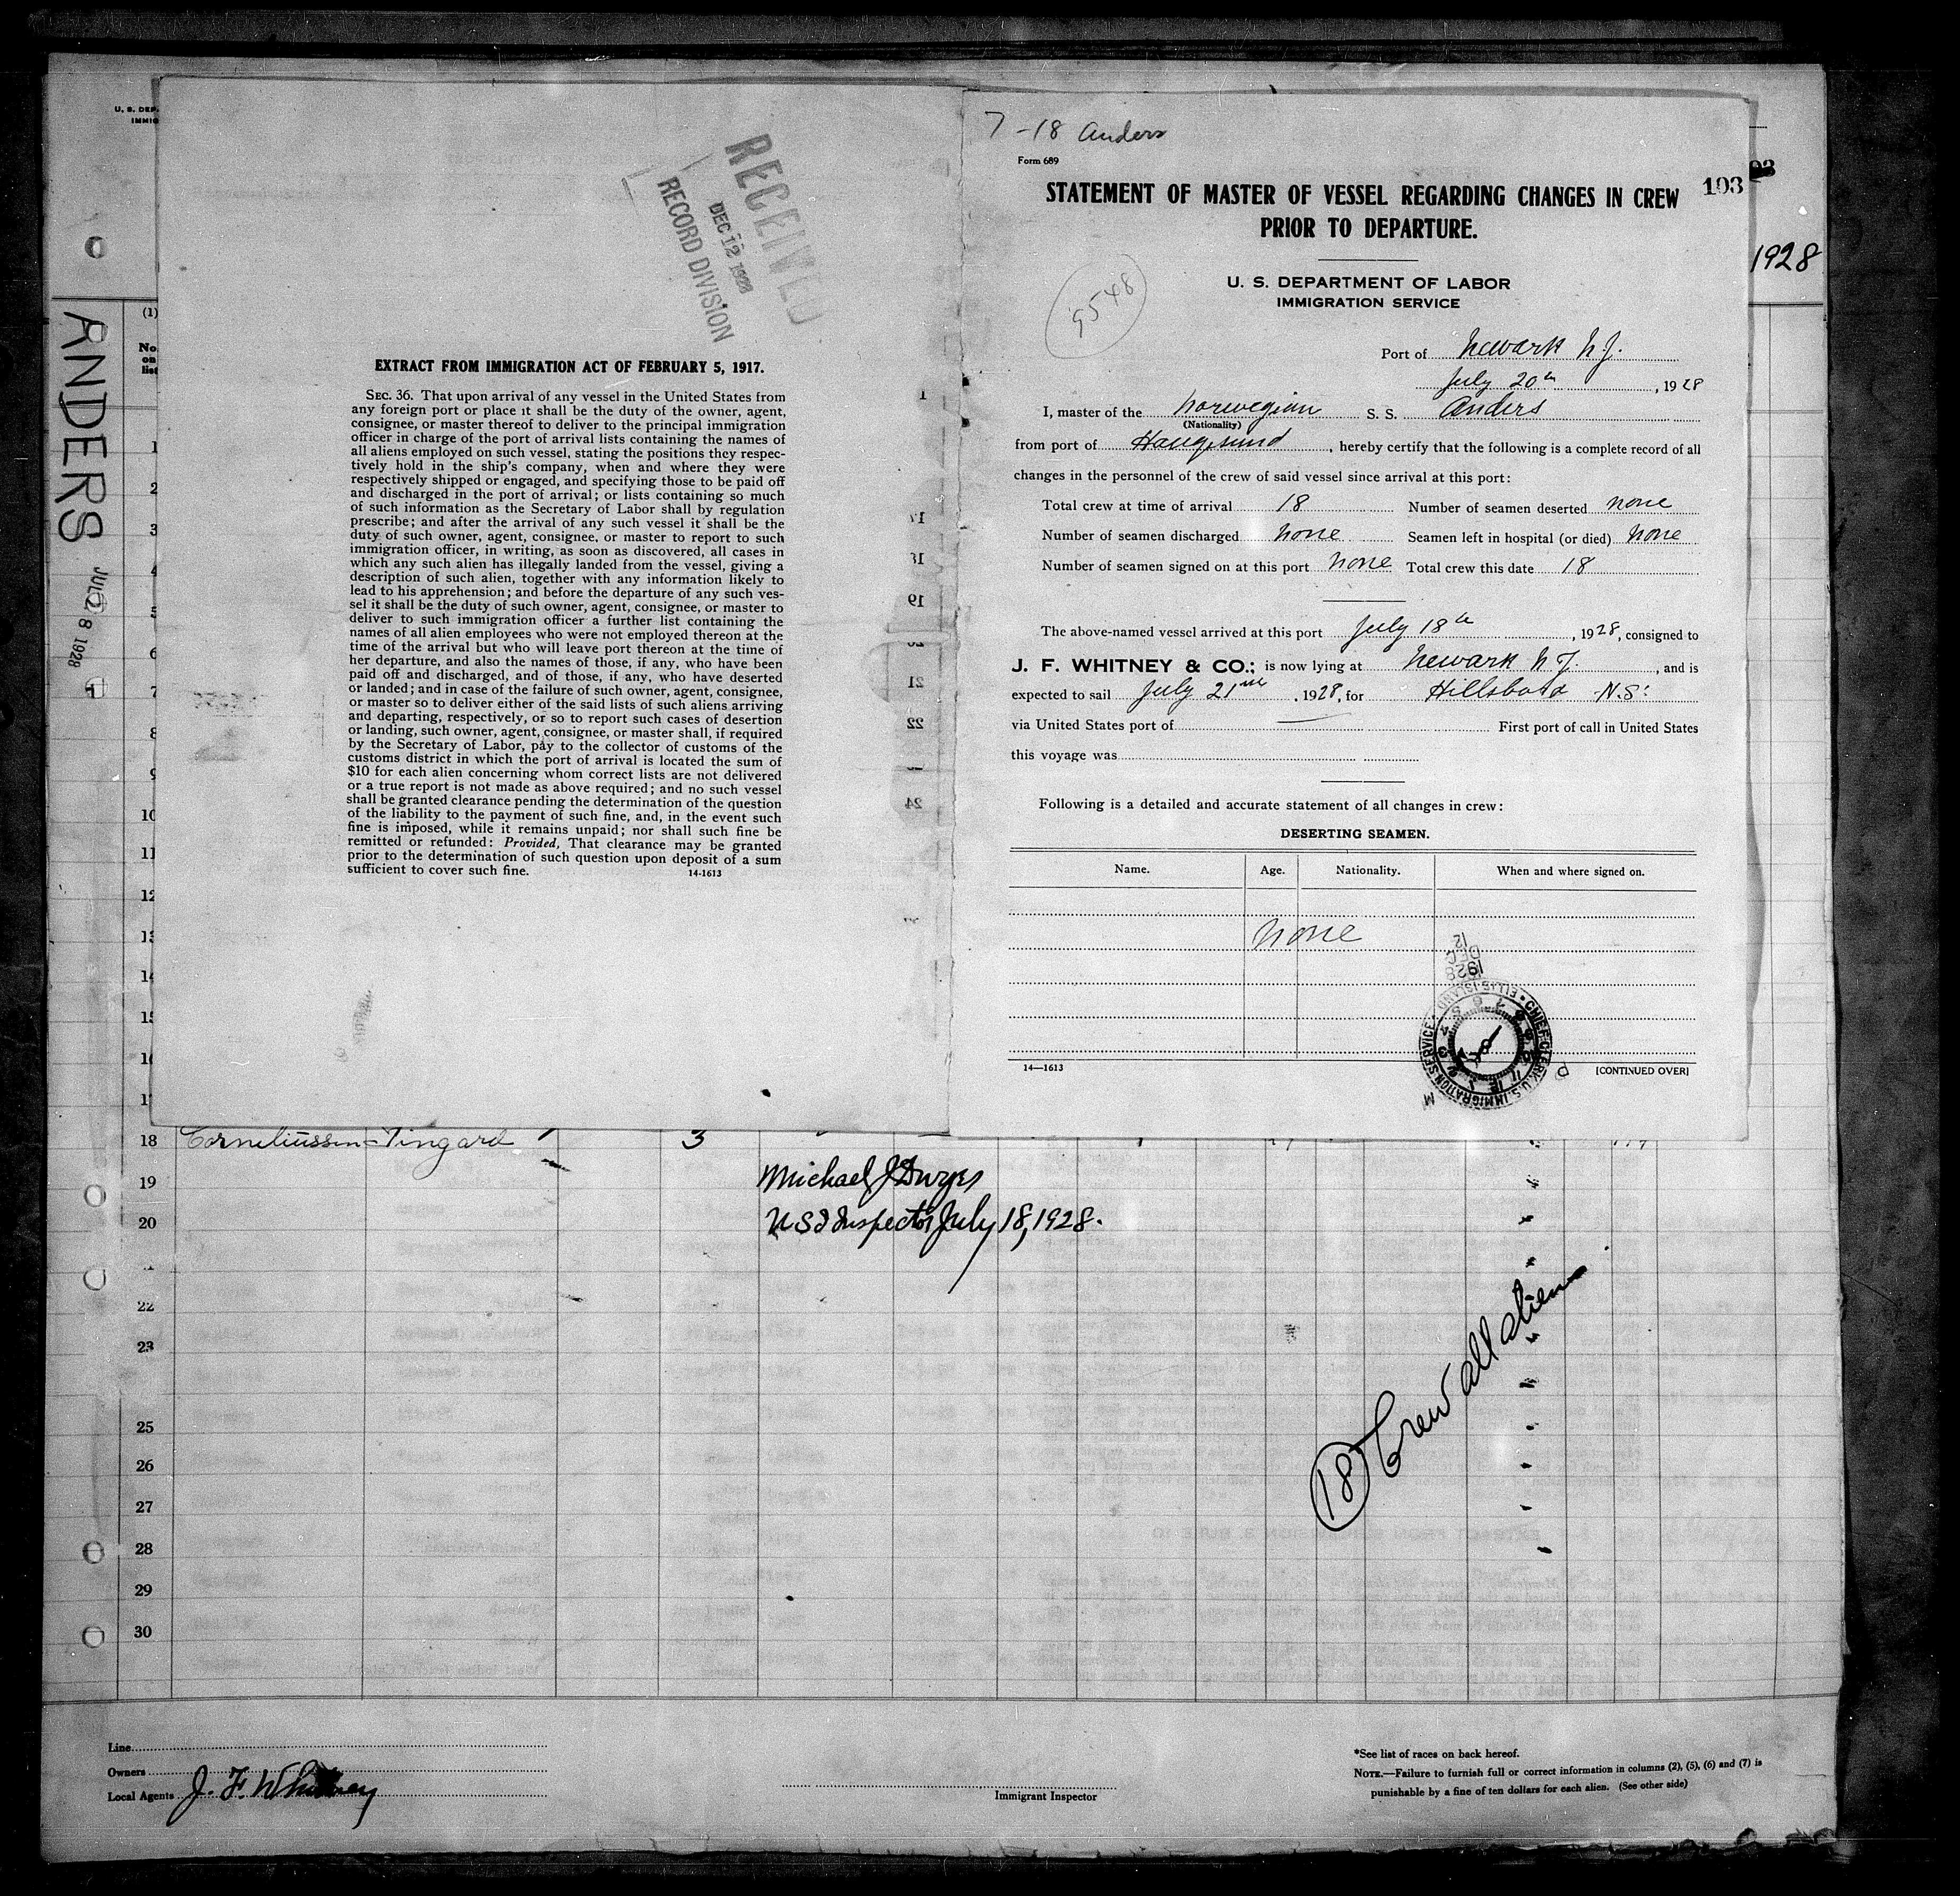 U. S. DEP
IMMIG
ANDERS
JUL 28 1928
(1)
No.
on
list
1
2
3
4
5
6
7
8
9
10
11
12
13
14
15
16
17
RECEIVED
DEC 12 1928
RECORD DIVISION
EXTRACT FROM IMMIGRATION ACT OF FEBRUARY 5, 1917.
SEC. 36. That upon arrival of any vessel in the United States from
any foreign port or place it shall be the duty of the owner, agent,
consignee, or master thereof to deliver to the principal immigration
officer in charge of the port of arrival lists containing the names of
all aliens employed on such vessel, stating the positions they respec-
tively hold in the ship's company, when and where they were
respectively shipped or engaged, and specifying those to be paid off
and discharged in the port of arrival; or lists containing so much
of such information as the Secretary of Labor shall by regulation
prescribe; and after the arrival of any such vessel it shall be the
duty of such owner, agent, consignee, or master to report to such
immigration officer, in writing, as soon as discovered, all cases in
which any such alien has illegally landed from the vessel, giving a
description of such alien, together with any information likely to
lead to his apprehension; and before the departure of any such ves-
sel it shall be the duty of such owner, agent, consignee, or master to
deliver to such immigration officer a further list containing the
names of all alien employees who were not employed thereon at the
time of the arrival but who will leave port thereon at the time of
her departure, and also the names of those, if any, who have been
paid off and discharged, and of those, if any, who have deserted
or landed; and in case of the failure of such owner, agent, consignee,
or master so to deliver either of the said lists of such aliens arriving
and departing, respectively, or so to report such cases of desertion
or landing, such owner, agent, consignee, or master shall, if required
by the Secretary of Labor, pay to the collector of customs of the
customs district in which the port of arrival is located the sum of
$10 for each alien concerning whom correct lists are not delivered
or a true report is not made as above required; and no such vessel
shall be granted clearance pending the determination of the question
of the liability to the payment of such fine, and, in the event such
fine is imposed, while it remains unpaid; nor shall such fine be
remitted or refunded: Provided, That clearance may be granted
prior to the determination of such question upon deposit of a sum
sufficient to cover such fine. 14-1613
7-18 Anders
Form 689
103
STATEMENT OF MASTER OF VESSEL REGARDING CHANGES IN CREW
PRIOR TO DEPARTURE.
1928
U. S. DEPARTMENT OF LABOR
IMMIGRATION SERVICE
9548
Port of Newark N.J.
July 20th, 1928
I, master of the Norwegian S. S. Anders
(Nationality)
from port of Haugesund, hereby certify that the following is a complete record of all
changes in the personnel of the crew of said vessel since arrival at this port:
Total crew at time of arrival 18 Number of seamen deserted none
Number of seamen discharged none Seamen left in hospital (or died) none
Number of seamen signed on at this port none Total crew this date 18
The above-named vessel arrived at this port July 18th, 1928, consigned to
J. F. WHITNEY & CO.; is now lying at Newark N.J., and is
expected to sail July 21st, 1928, for Hillsboro N.S.
via United States port of First port of call in United States
this voyage was
Following is a detailed and accurate statement of all changes in crew:
DESERTING SEAMEN.
Name. Age. Nationality. When and where signed on.
none
1928
DEC
12
CHIEF CLERK U.S. IMMIGRATION SERVICE ELLIS ISLAND
14—1613 [CONTINUED OVER]
18 Corneliussen Tingard 3
19 Michael J Dwyer
20 U S I Inspector July 18, 1928.
22
23
25
26
27
28
29
30
18 Crew all aliens
Line
Owners
Local Agents J. F. Whitney
Immigrant Inspector
*See list of races on back hereof.
NOTE.—Failure to furnish full or correct information in columns (2), (5), (6) and (7) is
punishable by a fine of ten dollars for each alien. (See other side)